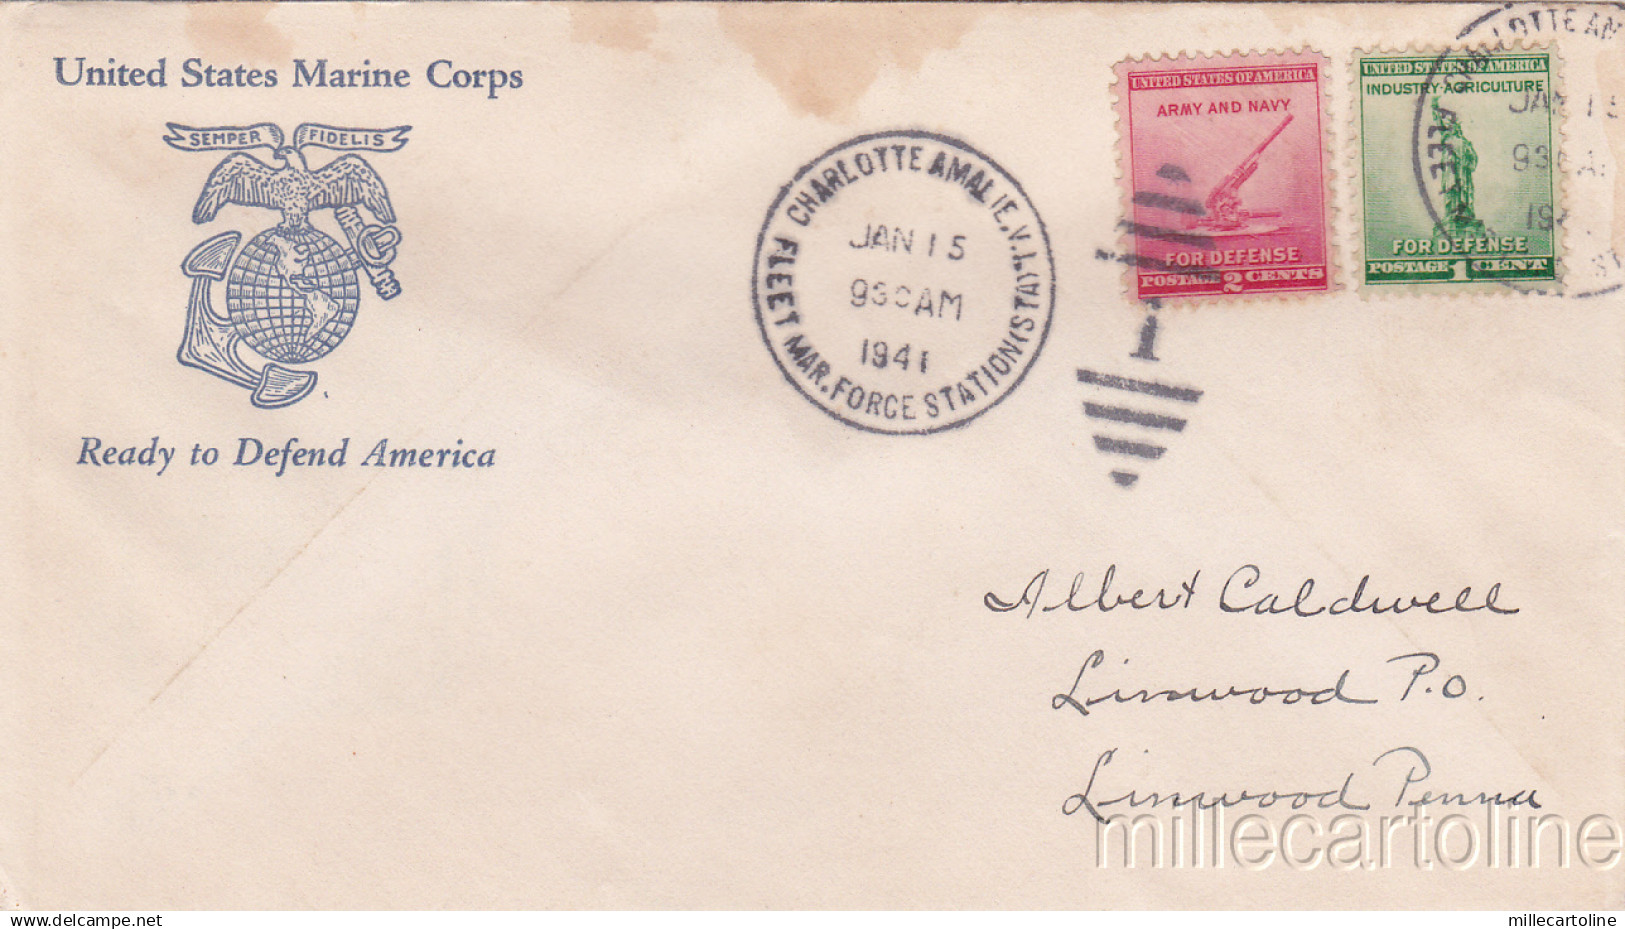 United States Marine Corps
SEMPER FIDELIS
Ready to Defend America
CHARLOTTE AMALIE, V.I. (STA.)
FLEET MAR. FORCE STATION
JAN 15
930AM
1941
1
UNITED STATES OF AMERICA
ARMY AND NAVY
FOR DEFENSE
POSTAGE 2 CENTS
UNITED STATES OF AMERICA
INDUSTRY-AGRICULTURE
FOR DEFENSE
POSTAGE 1 CENT
JAN 15
Albert Caldwell
Linwood P.O.
Linwood Penna
millecartoline
www.delcampe.net
millecartoline